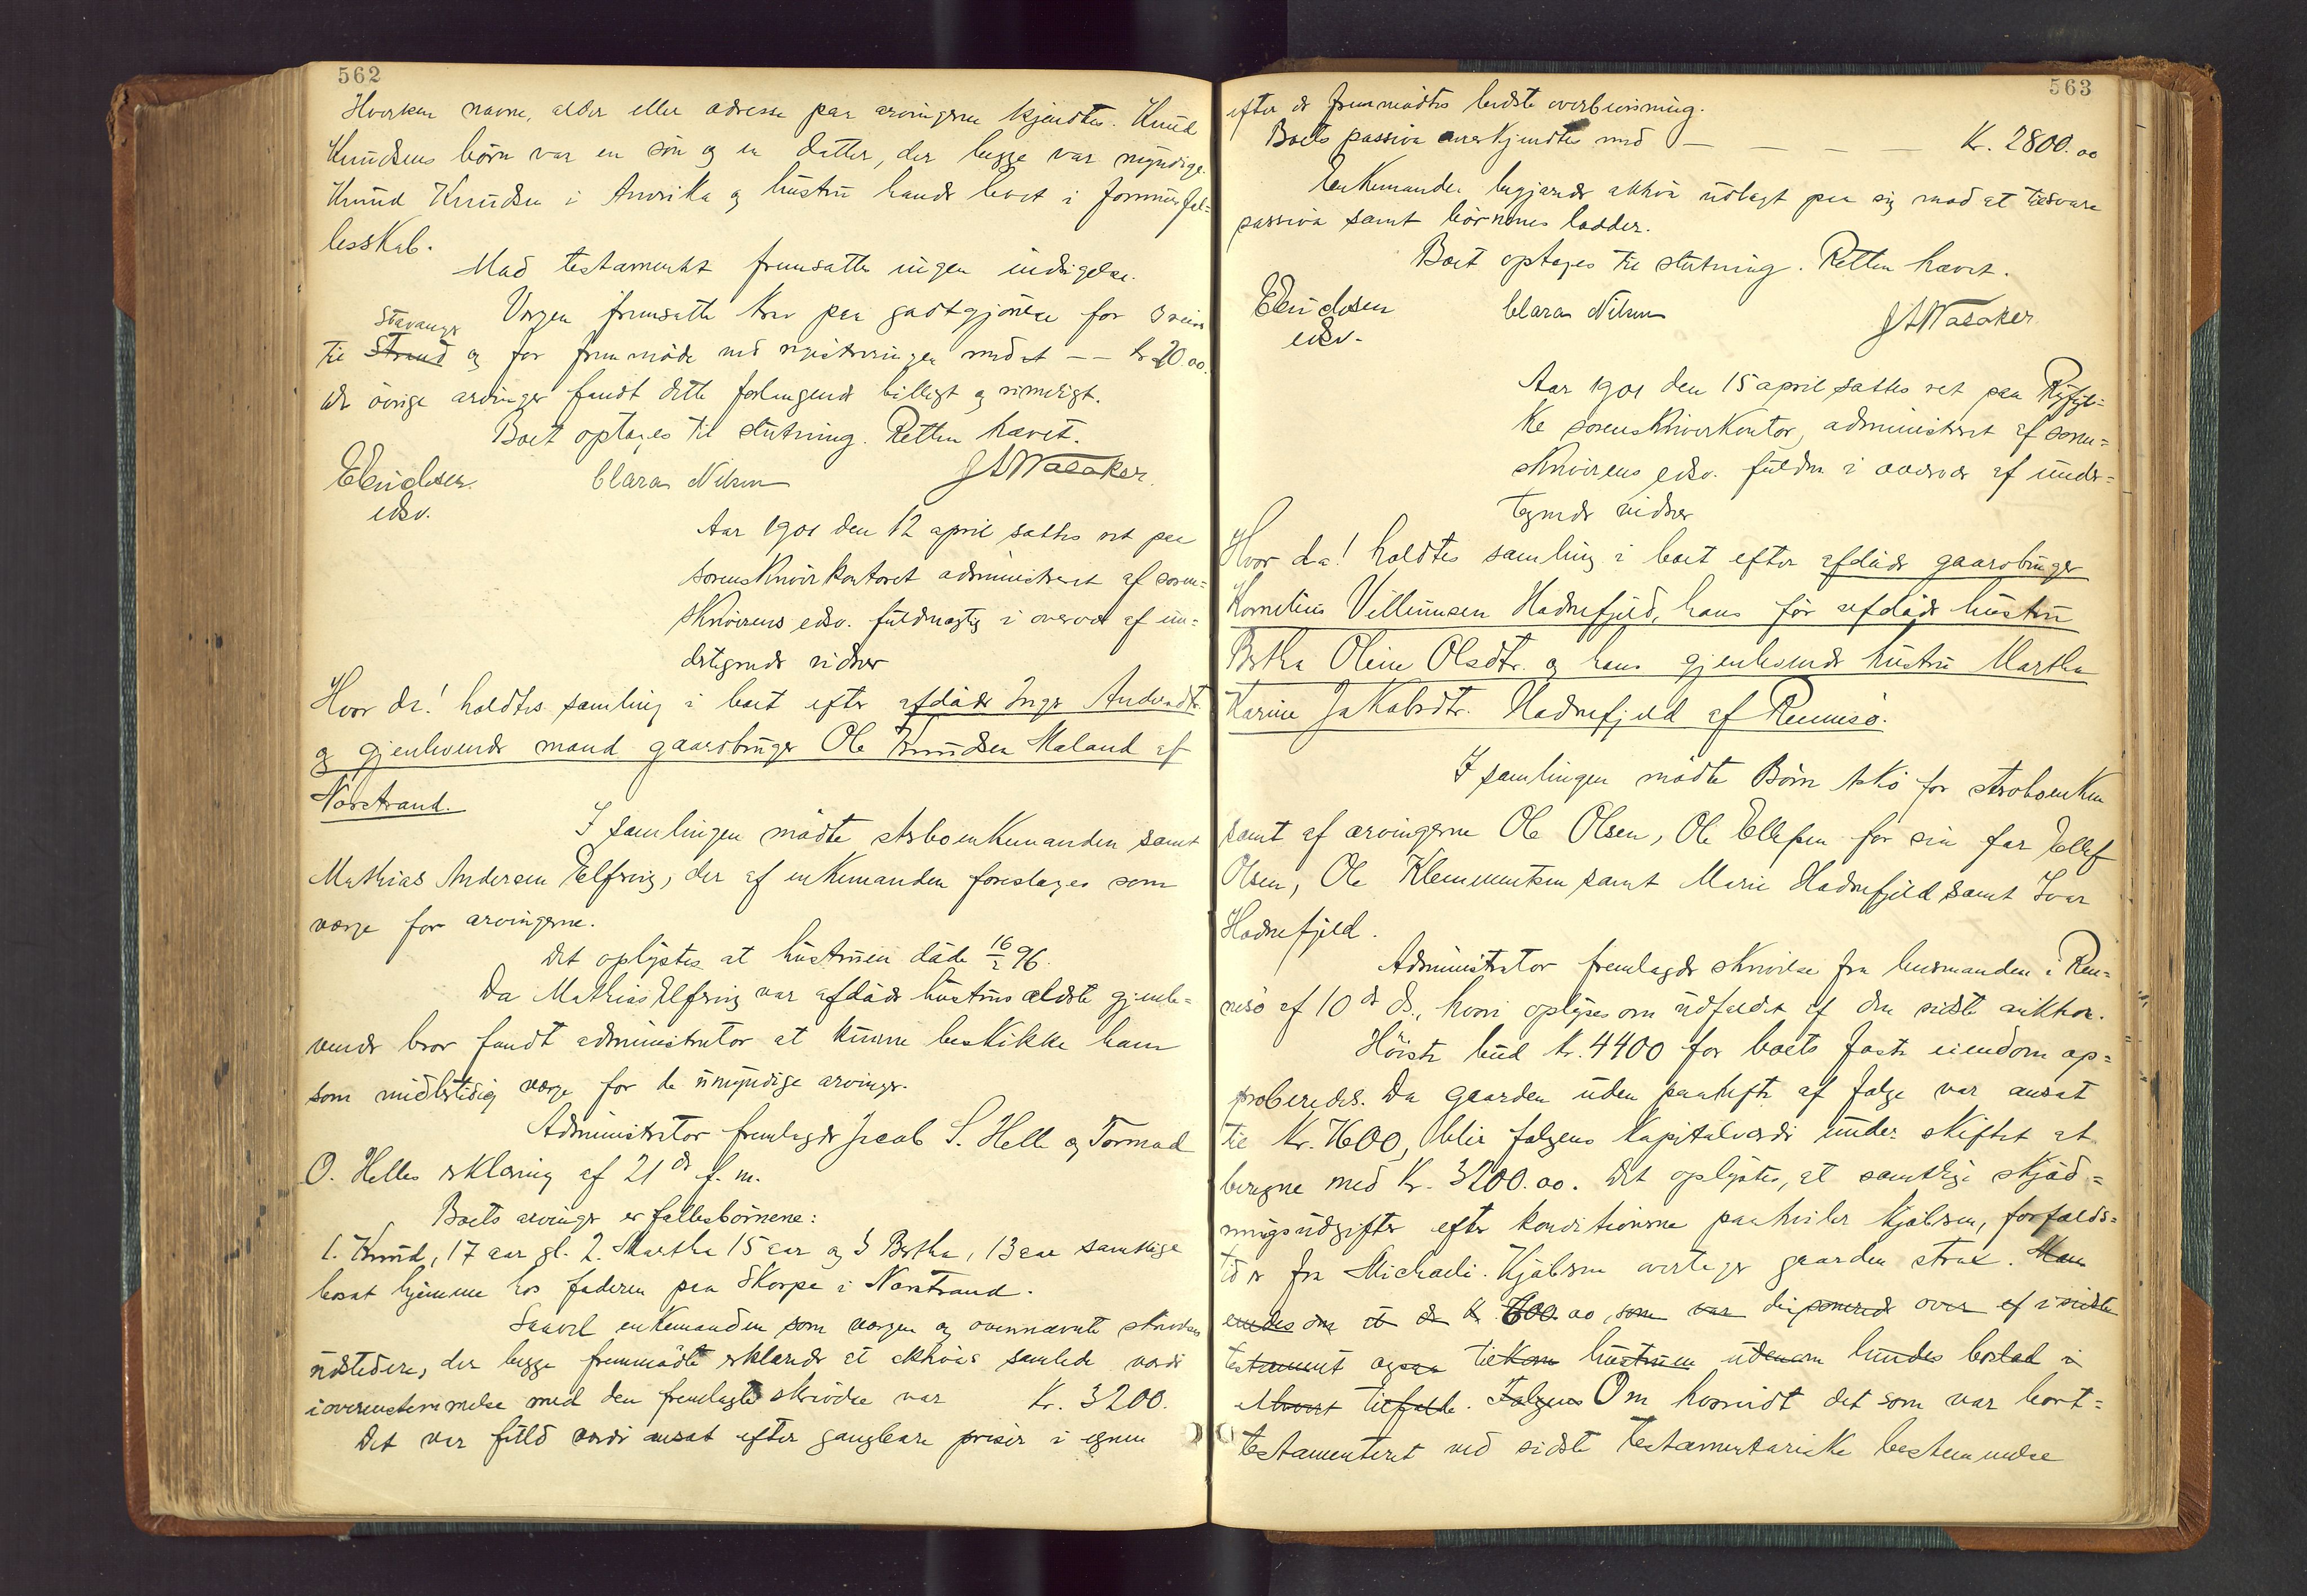 562
Hverken navne, alder eller adresse paa arvingerne kjendtes. Knud
Knudsens børn var en søn og en datter, der begge var myndige.
Knud Knudsen i Amerika og hustru havde levet i formuesfæl=
lesskab.
Mod testamentet fremsattes ingen indsigelse.
Værgen fremsatte krav paa godtgjørelse for 3 reiser
Stavanger
til Strand og for fremmøde ved registreringen med et — — kr 20.00.
De øvrige arvinger fandt dette forlangende billigt og rimeligt.
Boet optages til slutning. Retten hævet.
Clara Nilsen
edsv.
Aar 1901 den 12 april sattes ret paa
sorenskriverkontoret administreret af soren=
skriverens edsv. fuldmægtig i overvær af un=
dertegnede vidner
Hvor da! holdtes samling i boet efter afdøde Inger Andersdtr.
og gjenlevende mand gaardbruger Ole Knudsen Maland af
Nærstrand.
I samlingen mødte sterboenkemanden samt
Mathias Andersen Elfsvig, der af enkemanden foresloges som
værge for arvingerne.
Det oplystes at hustruen døde 16/2 96.
Da Mathias Elfsvig var afdøde hustrus ældste gjenle=
vende bror fandt administrator at kunne beskikke ham
som midlertidig værge for de umyndige arvinger.
Administrator fremlagde Jacob S. Helle og Tormod
O. Helles erklæring af 21de f. m.
Boets arvinger er fællesbørnene:
1. Knud, 17 aar gl. 2. Martha 15 aar og 3 Bertha, 13 aar samtlige
bosat hjemme hos faderen paa Skorpe i Nærstrand.
Saavel enkemanden som værgen og ovennævnte skrivelses
udstedere, der begge fremmødte erklærede at aktivas samlede værdi
i overensstemmelse med den fremlagte skrivelse var Kr. 3200.
Det var fuld værdi ansat efter gangbare priser i egnen
563
efter de fremmødtes bedste overbevisning.
Boets passiva anerkjendtes med — — — — — Kr. 2800.00
Enkemanden begjærede aktiva udlagt paa sig mod at tilsvare
passiva samt børnenes lodder.
Boet optages til slutning. Retten hævet.
Clara Nilsen
edsv.
Aar 1901 den 15 april sattes ret paa Ryfyl=
ke sorenskriverkontor, administreret af soren=
skriverens edsv. fuldm. i overvær af under=
tegnede vidner
Hvor da! holdtes samling i boet efter afdøde gaardbruger
Kornelius Villumsen Hodnefjeld, hans før afdøde hustru
Bertha Oline Olsdtr. og hans gjenlevende hustru Martha
Karine Jakobsdtr. Hodnefjeld af Rennesø.
I samlingen mødte Børn Askø for sterboenken
samt af arvingerne Ole Olsen, Ole Ellefsen for sin far Ellef
Olsen, Ole Klemmentsen samt Marie Hodnefjeld samt Ivar
Hodnefjeld.
Administrator fremlagde skrivelse fra lensmanden i Ren=
nesø af 10de ds., hvori oplyses om udfaldet af den sidste auktion.
Høieste bud kr. 4400 for boets faste eiendom ap=
proberedes. Da gaarden uden paahefte af følge var ansat
til Kr. 7600, blir følgens kapitalværdi under skiftet at
beregne med Kr. 3200.00. Det oplystes, at samtlige skjød=
ningsudgifter efter konditionerne paahviler kjøberen, forfalds=
tid er fra Michaeli. Kjøberen overtager gaarden strax. Man
endes om at de kr 600.00, som var disponerede over ef i sidste
testament ogsaa tilkom hustruen udenom hendes boslod i
tilfælde. Følgens Om hvorvidt det som var bort=
testamenteret ved sidste testamentariske bestemmelse